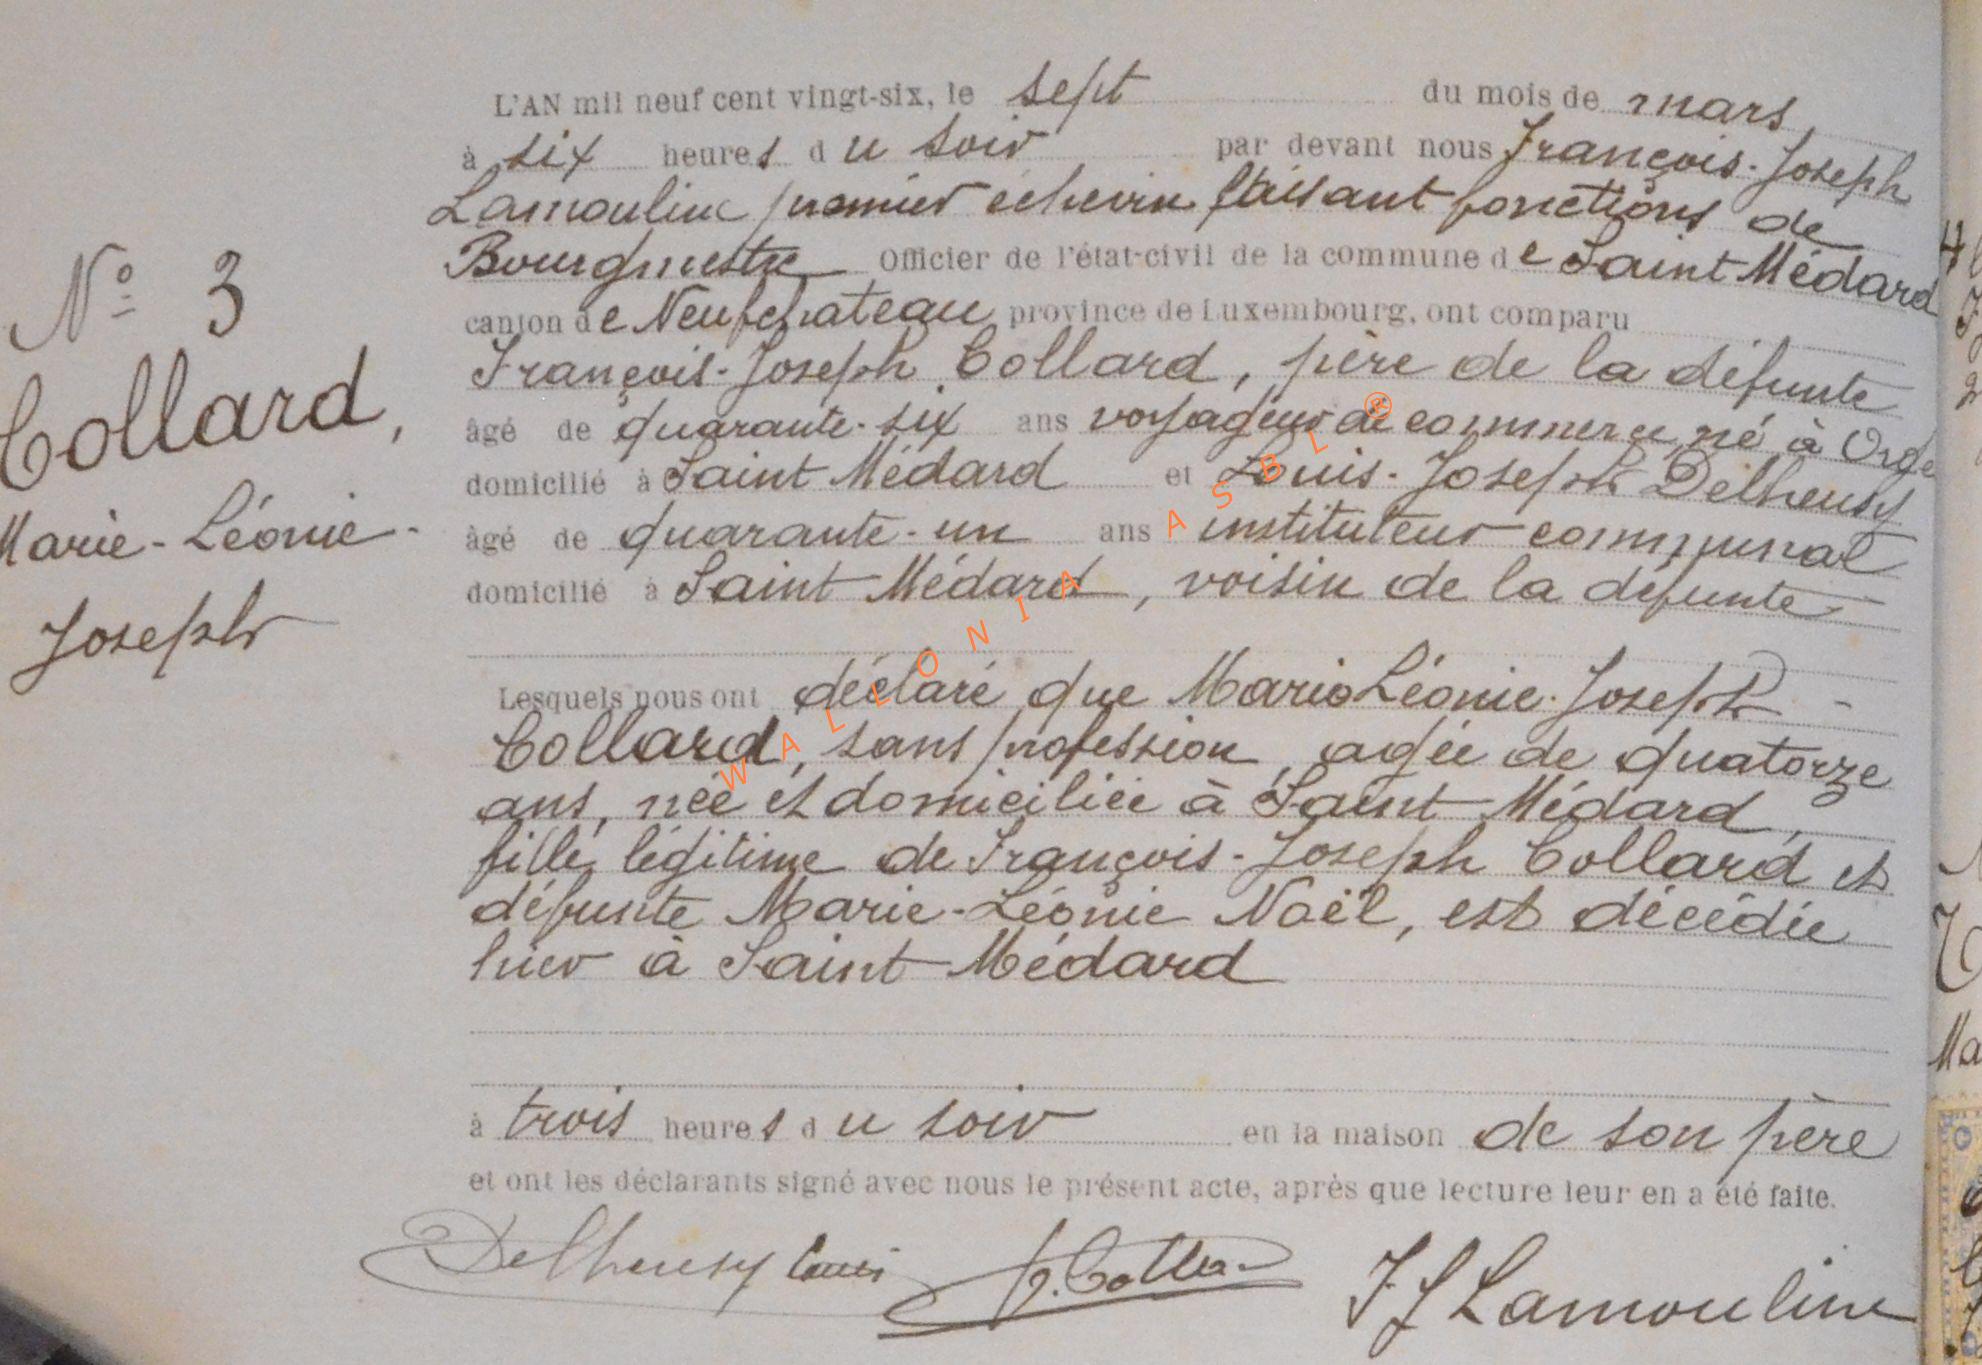 N° 3
Collard,
Marie-Léonie-
Joseph
L'AN mil neuf cent vingt-six, le sept du mois de mars
à six heures du soir par devant nous François-Joseph
Lamouline premier échevin faisant fonctions de
Bourgmestre Officier de l'état-civil de la commune de Saint Médard
canton de Neufchateau province de Luxembourg, ont comparu
François-Joseph Collard, père de la défunte
âgé de quarante-six ans voyageur de commerce, né à Orgeo
domicilié à Saint Médard et Louis-Joseph Delheusy
âgé de quarante-un ans instituteur communal
domicilié à Saint Médard, voisin de la défunte
Lesquels nous ont déclaré que Marie Léonie-Joseph-
Collard, sans profession, agée de quatorze
ans, née et domiciliée à Saint Médard,
fille légitime de François-Joseph Collard et
défunte Marie-Léonie Noël, est décédée
hier à Saint Médard
à trois heures du soir en la maison de son père
et ont les déclarants signé avec nous le présent acte, après que lecture leur en a été faite.
Delheusy Louis J. Collard FJ Lamouline
WALLONIA ASBL ®